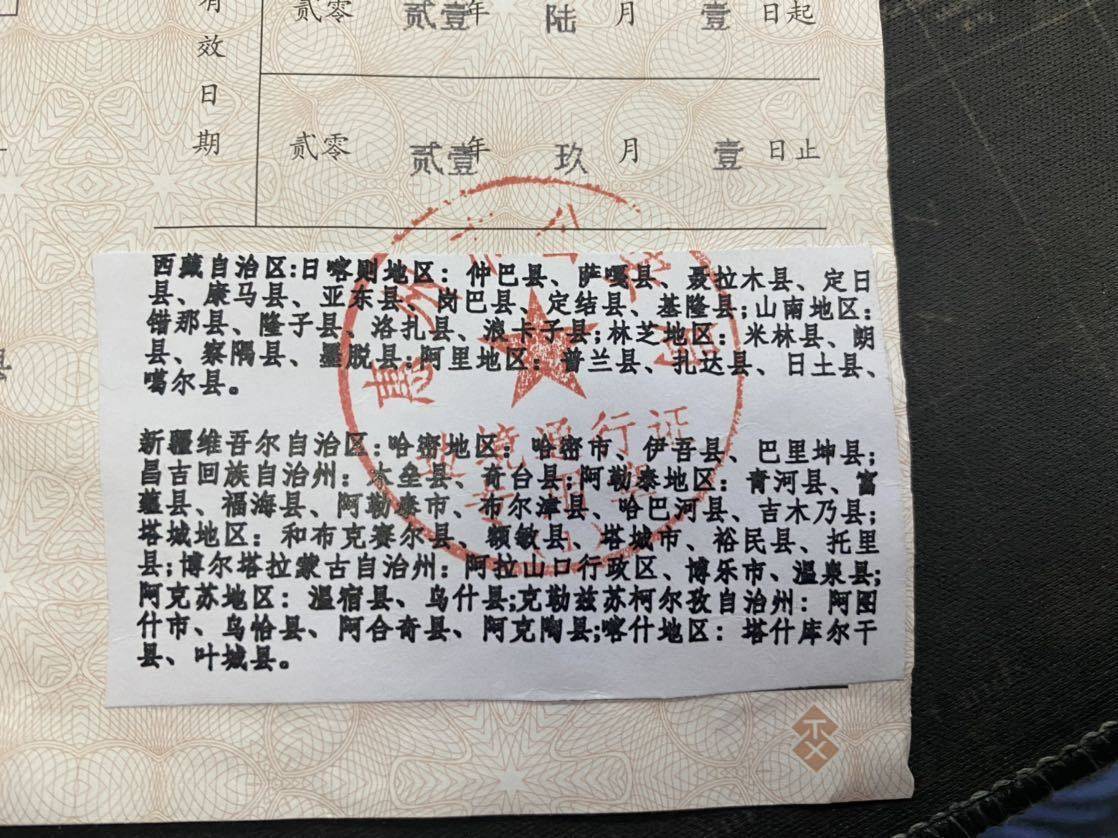 有效日期
贰零贰壹年陆月壹日起
贰零贰壹年玖月壹日止
西藏自治区:日喀则地区：仲巴县、萨嘎县、聂拉木县、定日
县、康马县、亚东县、岗巴县、定结县、基隆县;山南地区：
错那县、隆子县、洛扎县、浪卡子县;林芝地区：米林县、朗
县、察隅县、墨脱县;阿里地区：普兰县、扎达县、日土县、
噶尔县。
新疆维吾尔自治区:哈密地区：哈密市、伊吾县、巴里坤县;
昌吉回族自治州：木垒县、奇台县;阿勒泰地区：青河县、富
蕴县、福海县、阿勒泰市、布尔津县、哈巴河县、吉木乃县;
塔城地区：和布克赛尔县、额敏县、塔城市、裕民县、托里
县;博尔塔拉蒙古自治州：阿拉山口行政区、博乐市、温泉县;
阿克苏地区：温宿县、乌什县;克勒兹苏柯尔孜自治州：阿图
什市、乌恰县、阿合奇县、阿克陶县;喀什地区：塔什库尔干
县、叶城县。
通行证